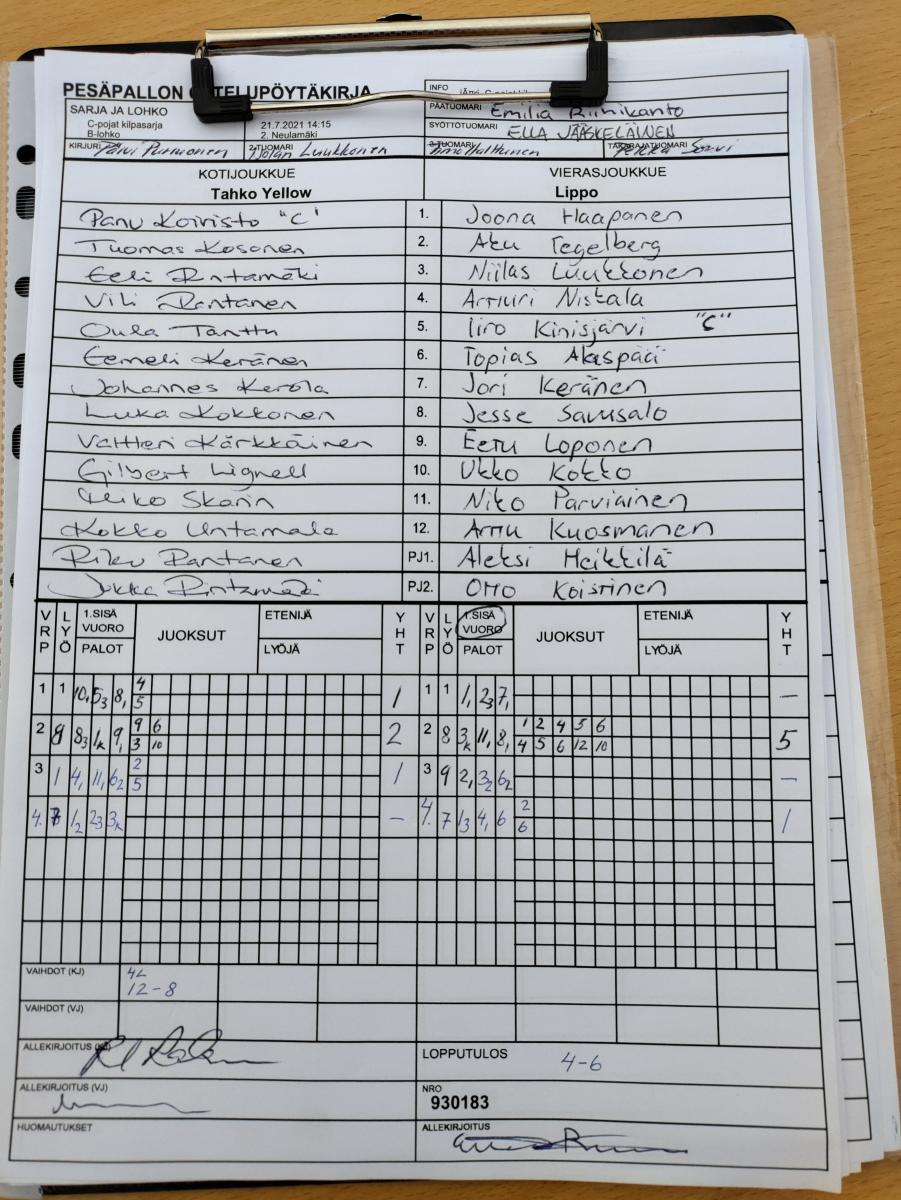 PESÄPALLON OTTELUPÖYTÄKIRJA
INFO
SARJA JA LOHKO
C-pojat kilpasarja
B-lohko
21.7.2021 14:15
2. Neulamäki
PÄÄTUOMARI Emilia Riihikanto
SYÖTTÖTUOMARI ELLA JÄÄSKELÄINEN
KIRJURI Päivi Parviainen 2-TUOMARI Luukkonen 3-TUOMARI TAKARAJATUOMARI Pekka
KOTIJOUKKUE VIERASJOUKKUE
Tahko Yellow Lippo
Panu Koivisto "C" 1. Joona Haapanen
Tuomas Kosonen 2. Aku Tegelberg
Eeli Rintamäki 3. Niilas Luukkonen
Vili Rantanen 4. Artturi Niskala
Oula Tanttu 5. Iiro Kinisjärvi "C"
Eemeli Keränen 6. Topias Alaspää
Johannes Kerola 7. Jori Keränen
Luka Kokkonen 8. Jesse Savusalo
Valtteri Kärkkäinen 9. Eetu Loponen
Gilbert Lignell 10. Ukko Kokko
Skarin 11. Niko Parviainen
Kokko Untamala 12. Arttu Kuosmanen
Riku Rantanen PJ1. Aleksi Heikkilä
Jukka Rintamäki PJ2. Otto Koistinen
VRP LYÖ 1.SISÄ VUORO PALOT JUOKSUT ETENIJÄ LYÖJÄ YHT VRP LYÖ 1.SISÄ VUORO PALOT JUOKSUT ETENIJÄ LYÖJÄ YHT
1 1 10, 53 8, 4 5 1 1 1 1, 23 7, -
2 8 83 1k 9, 9 6 3 10 2 2 8 3k 11, 8, 1 2 4 5 6 4 5 6 12 10 5
3 1 4, 11, 62 2 5 1 3 9 2, 32 62 -
4. 12 23 3k - 4. 7 13 4, 6 2 6 1
VAIHDOT (KJ) 4L
12-8
VAIHDOT (VJ)
ALLEKIRJOITUS
LOPPUTULOS 4-6
ALLEKIRJOITUS (VJ)
NRO
930183
HUOMAUTUKSET
ALLEKIRJOITUS